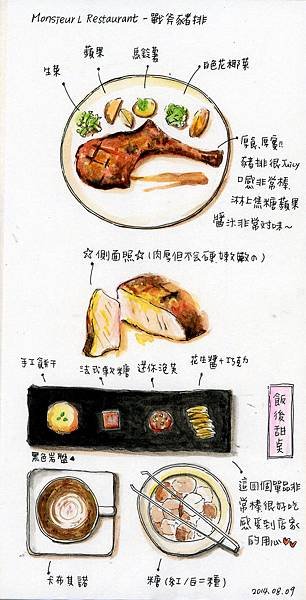 Monsieur L Restaurant - 戰斧豬排
生菜
蘋果
馬鈴薯
白色花椰菜
厚, 厚實!!
豬排很Juicy
口感非常棒,
淋上焦糖蘋果
醬汁非常對味~
☆側面照☆(肉厚但不會硬 嫩嫩の)
手工餅干
法式軟糖
迷你泡芙
花生醬+巧克力
黑色岩盤
飯後甜桌
卡布其諾
糖(紅/白二種)
這四個單品非
常棒很好吃
感受到店家
的用心♥
2014.08.09